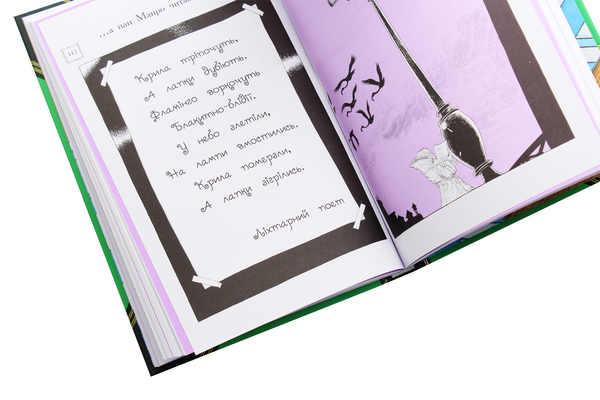 ...а пан Мауро читає
112
Крила тріпочуть,
А лапки дубіють.
Фламінго воркочуть
Блакитно-бліді.
У небо злетіли,
На лампи вмостились.
Крила померзли,
А лапки зігрілись.
Ліхтарний поет